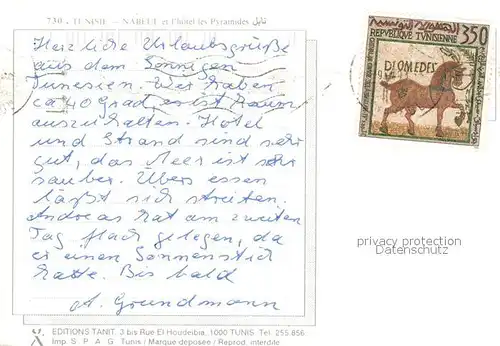 730 - TUNISIE - NABEUL et l'hôtel les Pyramides نابل
Herzliche Urlaubsgrüße
aus dem Sonnigen
Tunesien. Wir haben
ca 40 Grad, es ist kaum
auszuhalten. Hotel
und Strand sind sehr
gut, das Meer ist sehr
sauber. Übers essen
läßt sich streiten.
Andreas hat am zweiten
Tag flach gelegen, da
er einen Sonnenstich
hatte. Bis bald
A. Grundmann
350
REPUBLIQUE TUNISIENNE
DIOMEDES
privacy protection
Datenschutz
EDITIONS TANIT. 3 bis Rue El Houdeibia, 1000 TUNIS. Tel. 255.856
Imp. S. P. A. G. Tunis / Marque déposée / Reprod. interdite